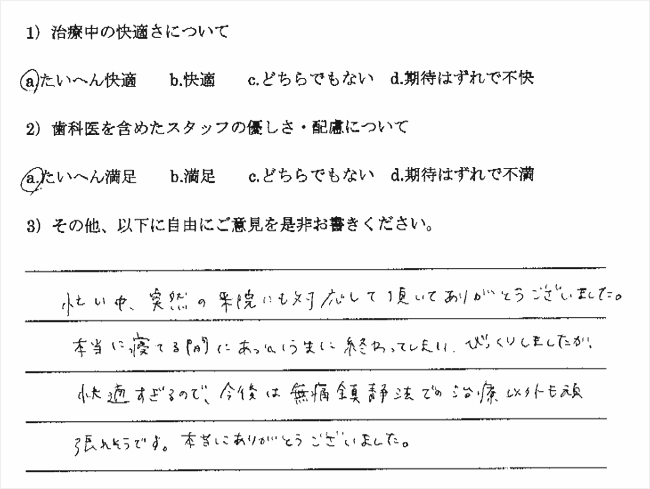 1）治療中の快適さについて
a.たいへん快適　b.快適　c.どちらでもない　d.期待はずれで不快
2）歯科医を含めたスタッフの優しさ・配慮について
a.たいへん満足　b.満足　c.どちらでもない　d.期待はずれで不満
3）その他、以下に自由にご意見を是非お書きください。
忙しい中、突然の来院にも対応して頂いてありがとうございました。
本当に寝てる間にあっという間に終わってしまい、びっくりしましたが、
快適すぎるので、今後は無痛鎮静法での治療以外も頑
張れそうです。本当にありがとうございました。